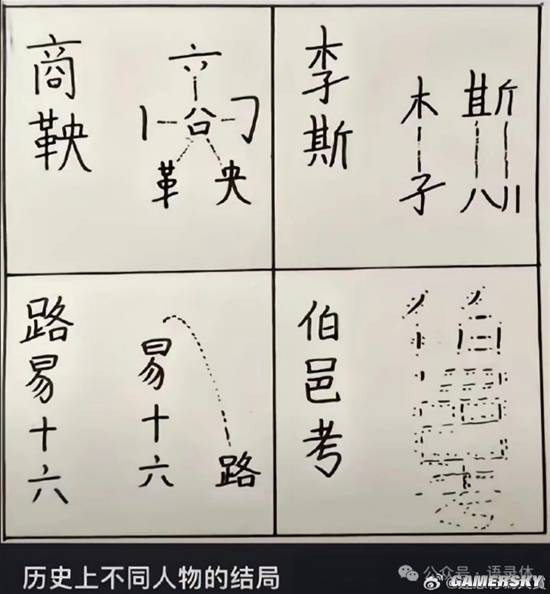 商鞅
六
㕣
革 央
李斯
木
子
八 川
路易十六
易十六
路
伯邑考
历史上不同人物的结局
公众号·语录体
GAMERSKY